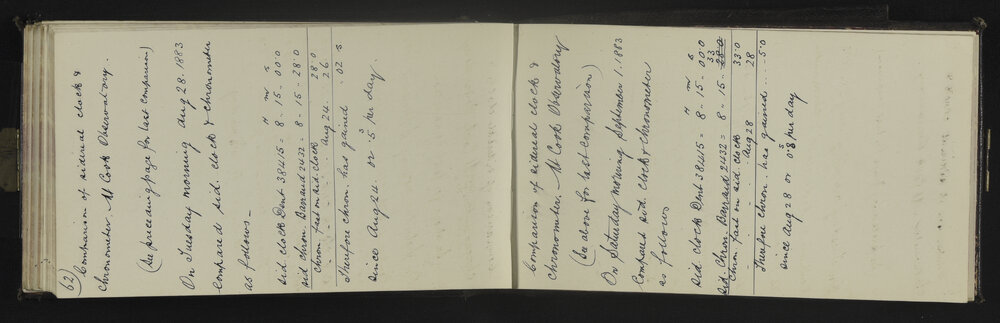 62) Comparison of sidereal clock &
chronometer. Mt Cook Observatory.
(See preceding page for last comparison)
On Tuesday morning Aug 28. 1883
compared sid. clock & chronometer
as follows –
H m s
Sid clock Dent 38415 = 8 - 15 - 00.0
sid chron. Barraud 2432 = 8 - 15 - 28.0
Chron fast on sid. clock 28.0
" " " " Aug 24. 26
Therefore chron. has gained . 02.s
since Aug 24. or .5s per day.
Comparison of sidereal clock &
chronometer. Mt Cook Observatory
(See above for last comparison)
On Saturday morning September 1. 1883
Compared sid. clock & Chronometer
as follows
H m s
Sid. clock Dent 38415 = 8 - 15 - 00.0
33
Sid. Chron. Barraud 2432 = 8 - 15 - 28.0
Chron fast on sid. clock 33.0
" " " " Aug 28 28
Therefore chron. has gained .... 5.0
since Aug 28 or 0.8s per day